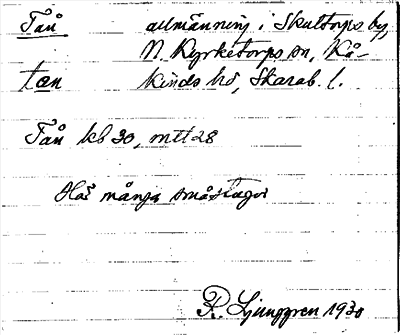 Tån allmänning, Skultorps by,
N. Kyrketorps sn, Kå-
tæn kinds hd, Skarab. l.
Tån kb 30, mtl 28
Har många små tegar
R. Ljunggren 1930